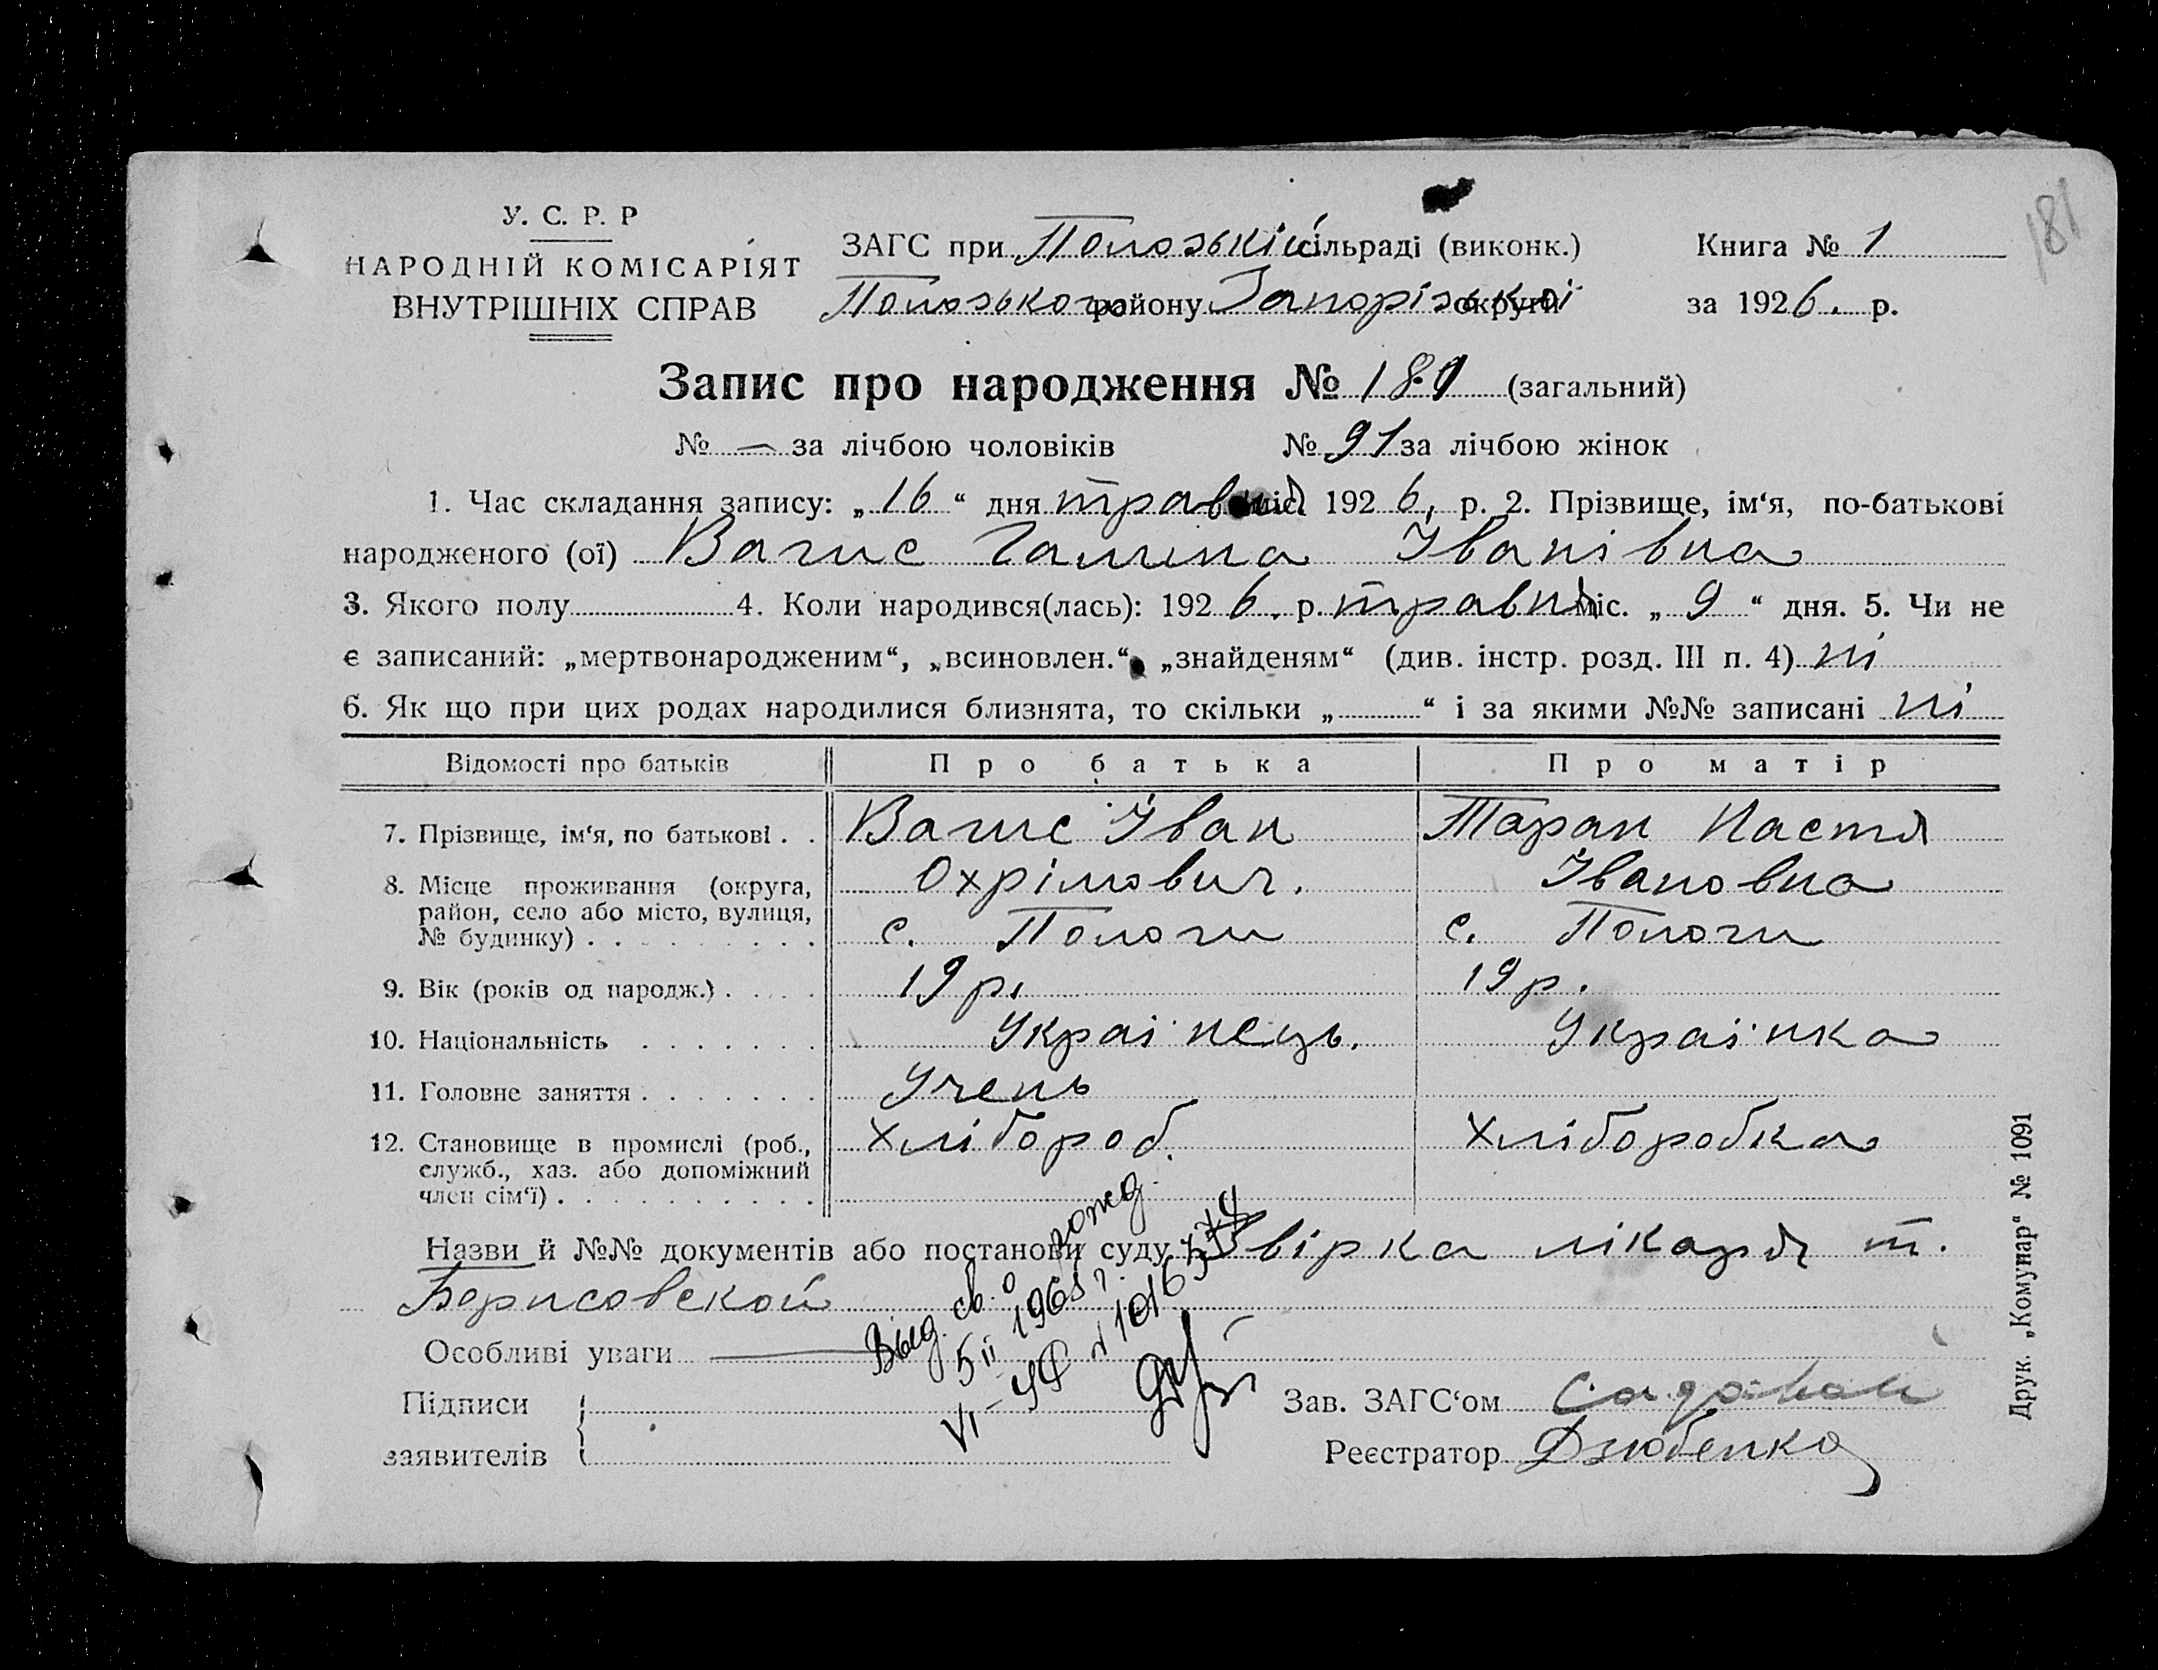 181
У. С. Р. Р
НАРОДНІЙ КОМІСАРІЯТ
ВНУТРІШНІХ СПРАВ
ЗАГС при Пологській сільраді (виконк.)
Пологського району Запорізької округи
Книга № 1
за 1926. р.
Запис про народження № 181 (загальний)
№ — за лічбою чоловіків № 91 за лічбою жінок
1. Час складання запису: „ 16 “ дня травня міс. 1926. р. 2. Прізвище, ім‘я, по-батькові
народженого (ої) Вагис Галина Іванівна
3. Якого полу 4. Коли народився(лась): 1926. р. травня міс. „ 9 “ дня. 5. Чи не
є записаний: „мертвонародженим“, „всиновлен.“, „знайденям“ (див. інстр. розд. III п. 4) ні
6. Як що при цих родах народилися близнята, то скільки „ “ і за якими №№ записані ні
Відомості про батьків Про батька Про матір
7. Прізвище, ім‘я, по батькові . . Вагис Іван Таран Настя
Охрімович. Івановна
8. Місце проживання (округа,
район, село або місто, вулиця,
№ будинку) . . . . . . . . . с. Пологи с. Пологи
9. Вік (років од народж.) . . . . 19 р. 19 р.
10. Національність . . . . . . . Українець. Українка
11. Головне заняття . . . . . . . Учень
12. Становище в промислі (роб., Хлібороб. Хліборобка
служб., хаз. або допоміжний
член сім‘ї) . . . . . . . . . . .
Назви й №№ документів або постанови суду Звірка лікаря т.
Борисовской
Выд. св. о рожд.
5 II 1965 г.
VI-ЯР №
Особливі уваги —
Підписи
заявителів
Зав. ЗАГС‘ом
Реєстратор Дзюбенко
Друк. „Комунар“ № 1091